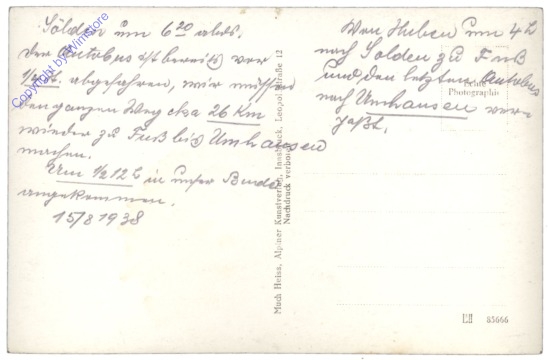 Sölden um 6 20 abds.
der Autobus ist bereits vor
1/4 St. abgefahren, wir müssen
den ganzen Weg cka 26 Km
wieder zu Fuß bis Umhausen
machen.
Um 1/2 12 h in unser Bude
angekommen.
15/8 1938
Von Huben um 4 h
nach Sölden zu Fuß
und den letzten Autobus
nach Umhausen ver-
paßt.
Echte
Photographie
Much Heiss, Alpiner Kunstverlag, Innsbruck, Leopoldstraße 12
Nachdruck verboten
83666
Copyright by Wirnstore